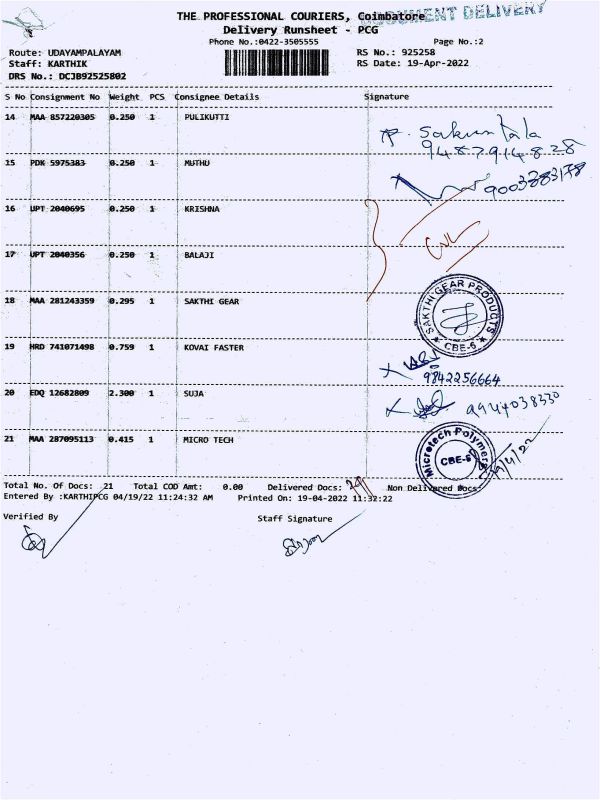 DOCUMENT DELIVERY
THE PROFESSIONAL COURIERS, Coimbatore
Delivery Runsheet - PCG
Phone No.:0422-3505555 Page No.:2
Route: UDAYAMPALAYAM RS No.: 925258
Staff: KARTHIK RS Date: 19-Apr-2022
DRS No.: DCJB92525802
S No Consignment No Weight PCS Consignee Details Signature
14 MAA 857220305 0.250 1 PULIKUTTI
P. Sakuntala
9487914828
15 PDK 5975383 0.250 1 MUTHU
9003783178
16 UPT 2040695 0.250 1 KRISHNA
17 UPT 2040356 0.250 1 BALAJI
18 MAA 281243359 0.295 1 SAKTHI GEAR
SAKTHI GEAR PRODUCTS
CBE-6
19 HRD 741071498 0.759 1 KOVAI FASTER
9842256664
20 EDQ 12682809 2.300 1 SUJA
9944038330
21 MAA 287095113 0.415 1 MICRO TECH
Microtech Polymers
CBE-6
Total No. Of Docs: 21 Total COD Amt: 0.00 Delivered Docs: Non Delivered Docs:
Entered By :KARTHIPCG 04/19/22 11:24:32 AM Printed On: 19-04-2022 11:32:22
Verified By Staff Signature